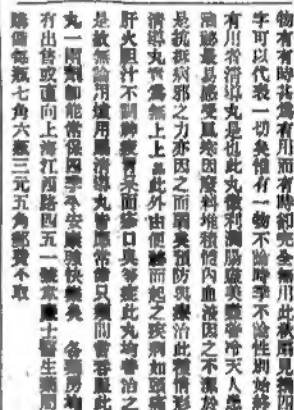 物有有時甚爲有用而有時卻完全無用此秋扇見捐四
字可以代表一切矣惟有一物不論時季不論性別始終
有用者清導丸是也此丸微利潤腸美體當冷天人患
秘最易感受風寒因廢料堆積體內血液因之不良於
是抗拒病邪之力亦因之而弱矣預防與療治此種情形
清導丸實爲無上上品此外由便秘而起之疾病如頭痛
肝火胆汁不調胃呆面瘡口臭等症此丸均善治之
是故無論用用清導丸皆應常備只須間嘗吞服此
丸一兩劑卽能常保四季平安康健快樂矣 各藥房均
有出售或直向上海江西路四五一號韋廉士醫生藥局
購每瓶七角六瓶三元五角郵費不取